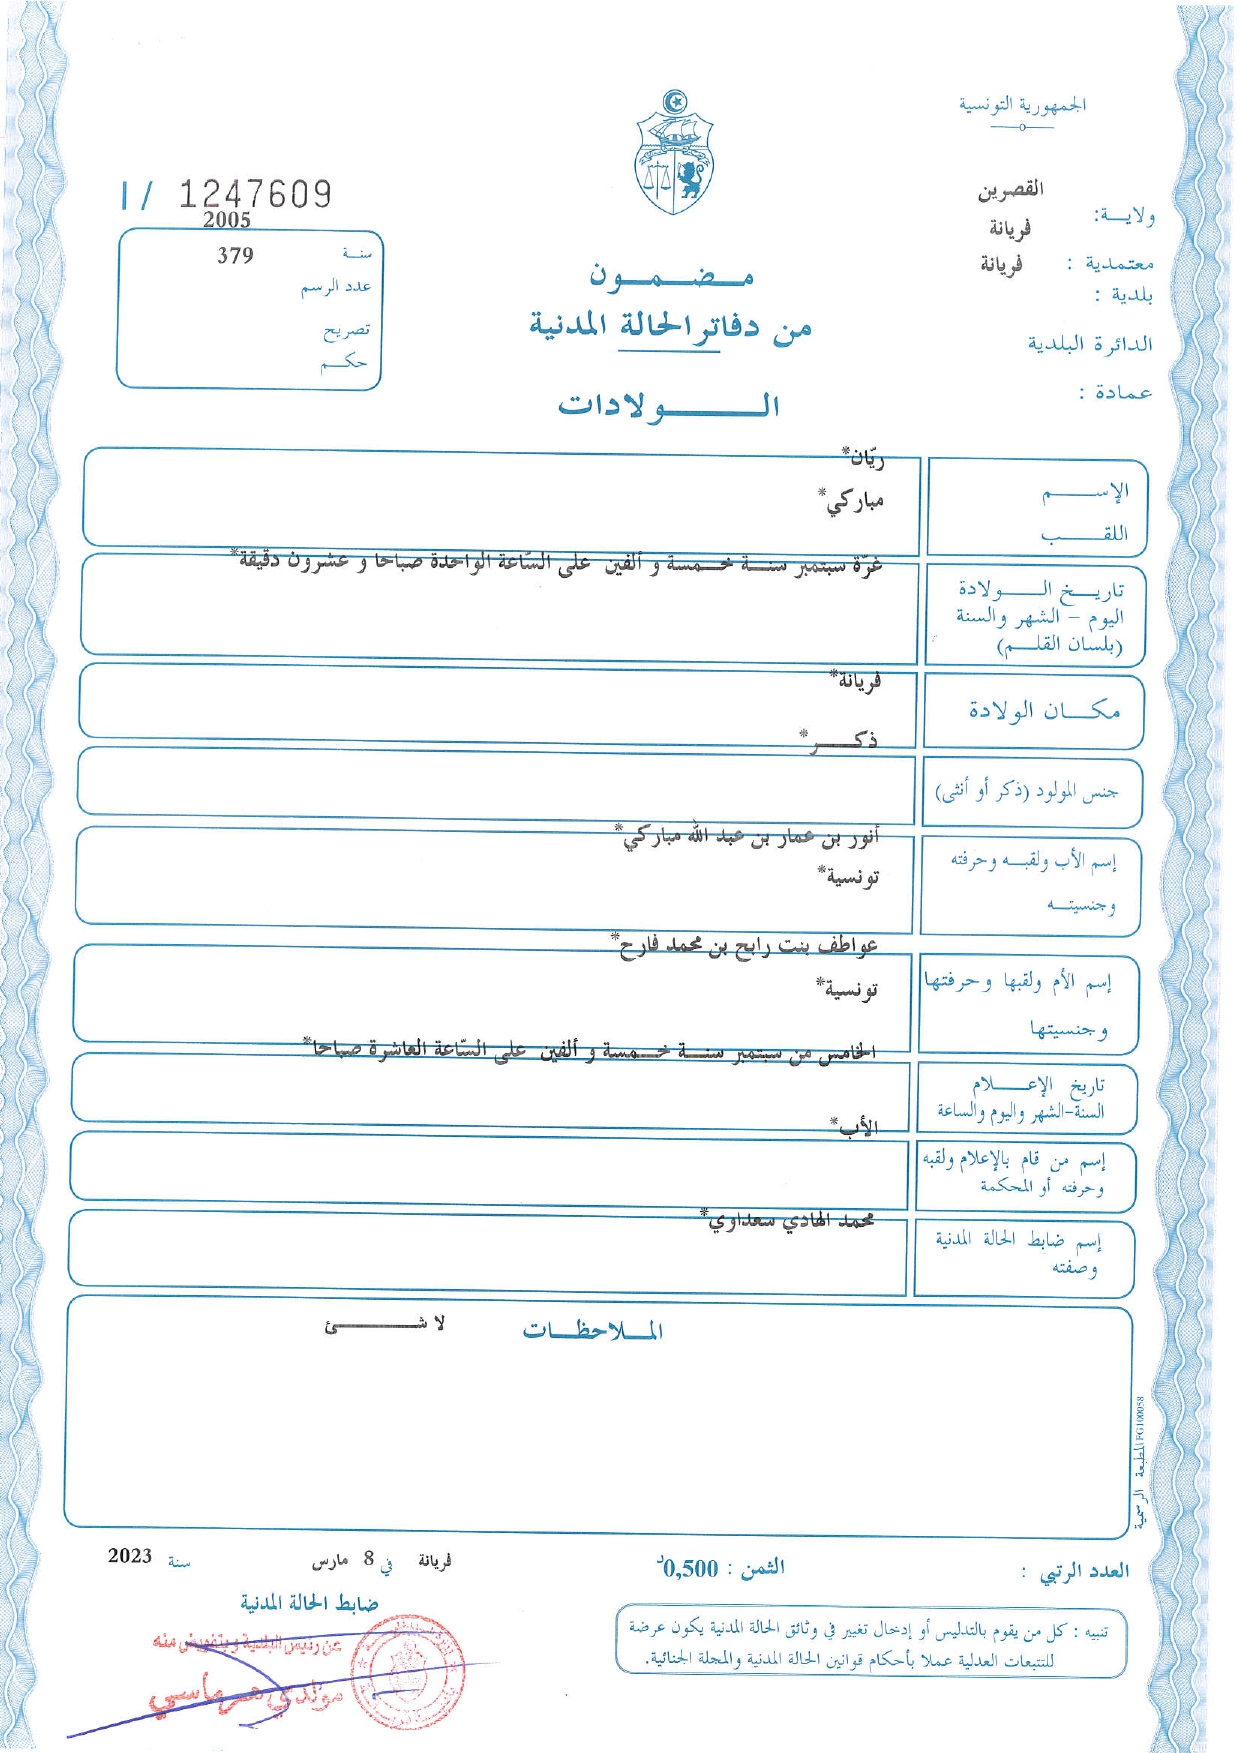 الجمهورية التونسية
ولايـــة: القصرين
معتمدية : فريانة
بلدية : فريانة
الدائرة البلدية
عمادة :
I / 1247609
2005
سنـة 379
عدد الرسم
تصريح
حكـــم
مـــضـــمـــون
من دفاتر الحالة المدنية
الـــــــولادات
الإســـــم ريّان*
اللقـــــب مباركي*
تاريـــخ الـــــولادة غرّة سبتمبر سنـــة خـــمسة و ألفين على السّاعة الواحدة صباحا و عشرون دقيقة*
اليوم – الشهر والسنة
(بلسان القلـــم)
مكـــان الولادة فريانة*
ذكـــــر*
جنس المولود (ذكر أو أنثى)
أنور بن عمار بن عبد الله مباركي*
إسم الأب ولقبـــه وحرفته
تونسية*
وجنسيتـــه
عواطف بنت رابح بن محمد فارح*
إسم الأم ولقبها وحرفتها
تونسية*
وجنسيتها
الخامس من سبتمبر سنـــة خـــمسة و ألفين على السّاعة العاشرة صباحا*
تاريخ الإعـــــلام
السنة-الشهر واليوم والساعة
الأب*
إسم من قام بالإعلام ولقبه
وحرفته أو المحكمة
محمد الهادي سعداوي*
إسم ضابط الحالة المدنية
وصفته
المـــلاحظـــات لا شـــــــــئ
المطبعة الرسمية FG100058
العدد الرتبي :
الثمن : 0,500د
فريانة في 8 مارس سنة 2023
ضابط الحالة المدنية
عن رئيس البلدية وبتفويض منه
مولدي هرماسي
تنبيه : كل من يقوم بالتدليس أو إدخال تغيير في وثائق الحالة المدنية يكون عرضة
للتتبعات العدلية عملا بأحكام قوانين الحالة المدنية والمجلة الجنائية.